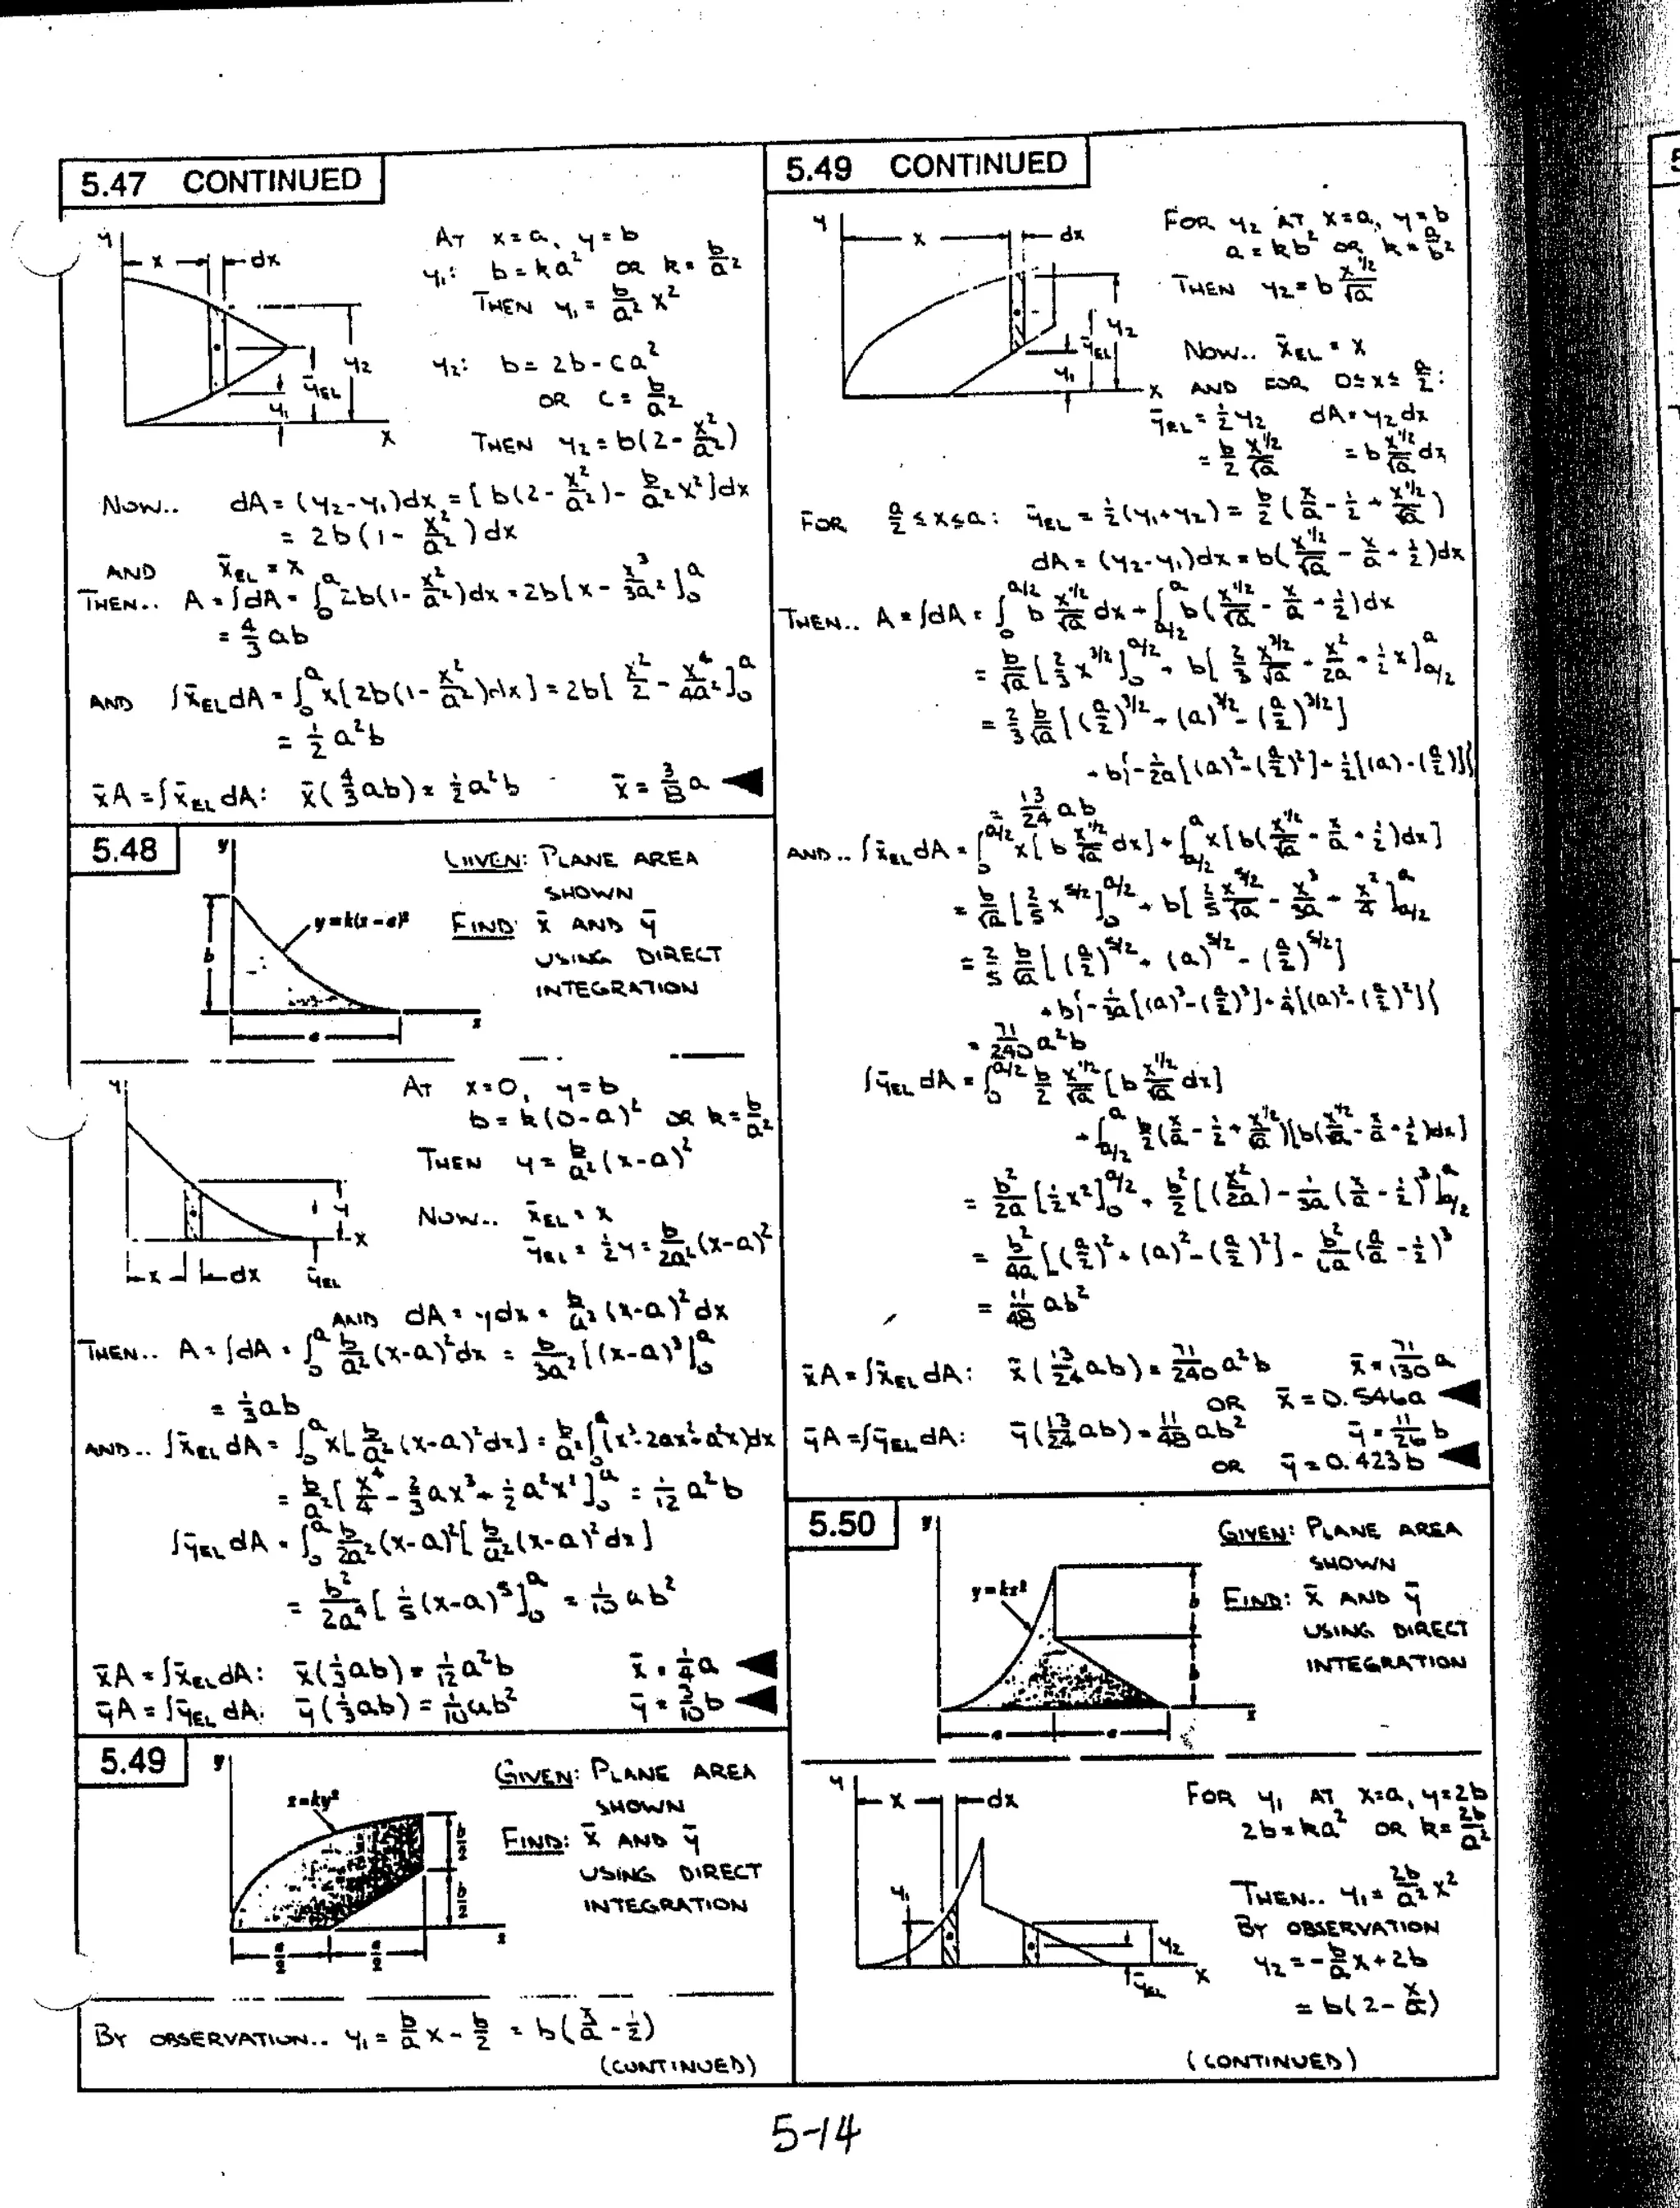 5.47 CONTINUED
y
x
dx
y₂
ȳEL
y₁
x
AT x=a, y=b
y₁: b=ka² OR k=b/a²
THEN y₁ = b/a² x²
y₂: b=2b-ca²
OR c=b/a²
THEN y₂=b(2-x²/a²)
NOW.. dA=(y₂-y₁)dx=[b(2-x²/a²)-b/a² x²]dx
= 2b(1-x²/a²)dx
AND x̄EL=x
THEN.. A=∫dA=∫₀ᵃ 2b(1-x²/a²)dx=2b[x-x³/3a²]₀ᵃ
= 4/3 ab
AND ∫x̄EL dA=∫₀ᵃ x[2b(1-x²/a²)dx]=2b[x²/2-x⁴/4a²]₀ᵃ
= 1/2 a²b
x̄A=∫x̄EL dA: x̄(4/3 ab)=1/2 a²b x̄=3/8 a
5.48
y
y=k(x-a)²
b
a
x
GIVEN: PLANE AREA
SHOWN
FIND: x̄ AND ȳ
USING DIRECT
INTEGRATION
y
y
x
x
dx
ȳEL
AT x=0, y=b
b=k(0-a)² OR k=b/a²
THEN y=b/a²(x-a)²
NOW.. x̄EL=x
ȳEL=1/2 y=b/2a²(x-a)²
AND dA=ydx=b/a²(x-a)²dx
THEN.. A=∫dA=∫₀ᵃ b/a²(x-a)²dx = b/3a²[(x-a)³]₀ᵃ
= 1/3 ab
AND.. ∫x̄EL dA=∫₀ᵃ x[b/a²(x-a)²dx]=b/a²∫₀ᵃ(x³-2ax²+a²x)dx
= b/a²[x⁴/4-2/3 ax³+1/2 a²x²]₀ᵃ = 1/12 a²b
∫ȳEL dA=∫₀ᵃ b/2a²(x-a)²[b/a²(x-a)²dx]
= b²/2a⁴[1/5(x-a)⁵]₀ᵃ = 1/10 ab²
x̄A=∫x̄EL dA: x̄(1/3 ab)=1/12 a²b x̄=1/4 a
ȳA=∫ȳEL dA: ȳ(1/3 ab)=1/10 ab² ȳ=3/10 b
5.49
y
x=ky²
b/2
b/2
a/2
a/2
x
GIVEN: PLANE AREA
SHOWN
FIND: x̄ AND ȳ
USING DIRECT
INTEGRATION
BY OBSERVATION.. y₁=b/a x-b/2 = b(x/a-1/2)
(CONTINUED)
5.49 CONTINUED
y
x
dx
y₂
ȳEL
y₁
x
FOR y₂ AT x=a, y=b
a=kb² OR k=a/b²
THEN y₂=b x^1/2/√a
NOW.. x̄EL=x
AND FOR 0≤x≤a/2:
ȳEL=1/2 y₂ dA=y₂dx
= b/2 x^1/2/√a = b x^1/2/√a dx
FOR a/2≤x≤a: ȳEL=1/2(y₁+y₂)=b/2(x/a-1/2+x^1/2/√a)
dA=(y₂-y₁)dx=b(x^1/2/√a-x/a+1/2)dx
THEN.. A=∫dA=∫₀^a/2 b x^1/2/√a dx+∫a/2^a b(x^1/2/√a-x/a+1/2)dx
= b/√a[2/3 x^3/2]₀^a/2+b[2/3 x^3/2/√a-x²/2a+1/2 x]a/2^a
= 2/3 b/√a[(a/2)^3/2+(a)^3/2-(a/2)^3/2]
+b{-1/2a[(a)²-(a/2)²]+1/2[(a)-(a/2)]}
= 13/24 ab
AND.. ∫x̄EL dA=∫₀^a/2 x[b x^1/2/√a dx]+∫a/2^a x[b(x^1/2/√a-x/a+1/2)dx]
= b/√a[2/5 x^5/2]₀^a/2+b[2/5 x^5/2/√a-x³/3a+x²/4]a/2^a
= 2/5 b/√a[(a/2)^5/2+(a)^5/2-(a/2)^5/2]
+b{-1/3a[(a)³-(a/2)³]+1/4[(a)²-(a/2)²]}
= 71/240 a²b
∫ȳEL dA=∫₀^a/2 b/2 x^1/2/√a[b x^1/2/√a dx]
+∫a/2^a b/2(x/a-1/2+x^1/2/√a)[b(x^1/2/√a-x/a+1/2)dx]
= b²/2a[1/2 x²]₀^a/2+b²/2[(x²/2a)-1/3a(x/a-1/2)³]a/2^a
= b²/4a[(a/2)²+(a)²-(a/2)²]-b²/6a(a/a-1/2)³
= 11/48 ab²
x̄A=∫x̄EL dA: x̄(13/24 ab)=71/240 a²b x̄=71/130 a
OR x̄=0.546a
ȳA=∫ȳEL dA: ȳ(13/24 ab)=11/48 ab² ȳ=11/26 b
OR ȳ=0.423b
5.50
y
y=kx²
b
b
a
a
x
GIVEN: PLANE AREA
SHOWN
FIND: x̄ AND ȳ
USING DIRECT
INTEGRATION
y
x
dx
y₁
y₂
ȳEL
x
FOR y₁ AT x=a, y=2b
2b=ka² OR k=2b/a²
THEN.. y₁=2b/a² x²
BY OBSERVATION
y₂=-b/a x+2b
= b(2-x/a)
(CONTINUED)
5-14